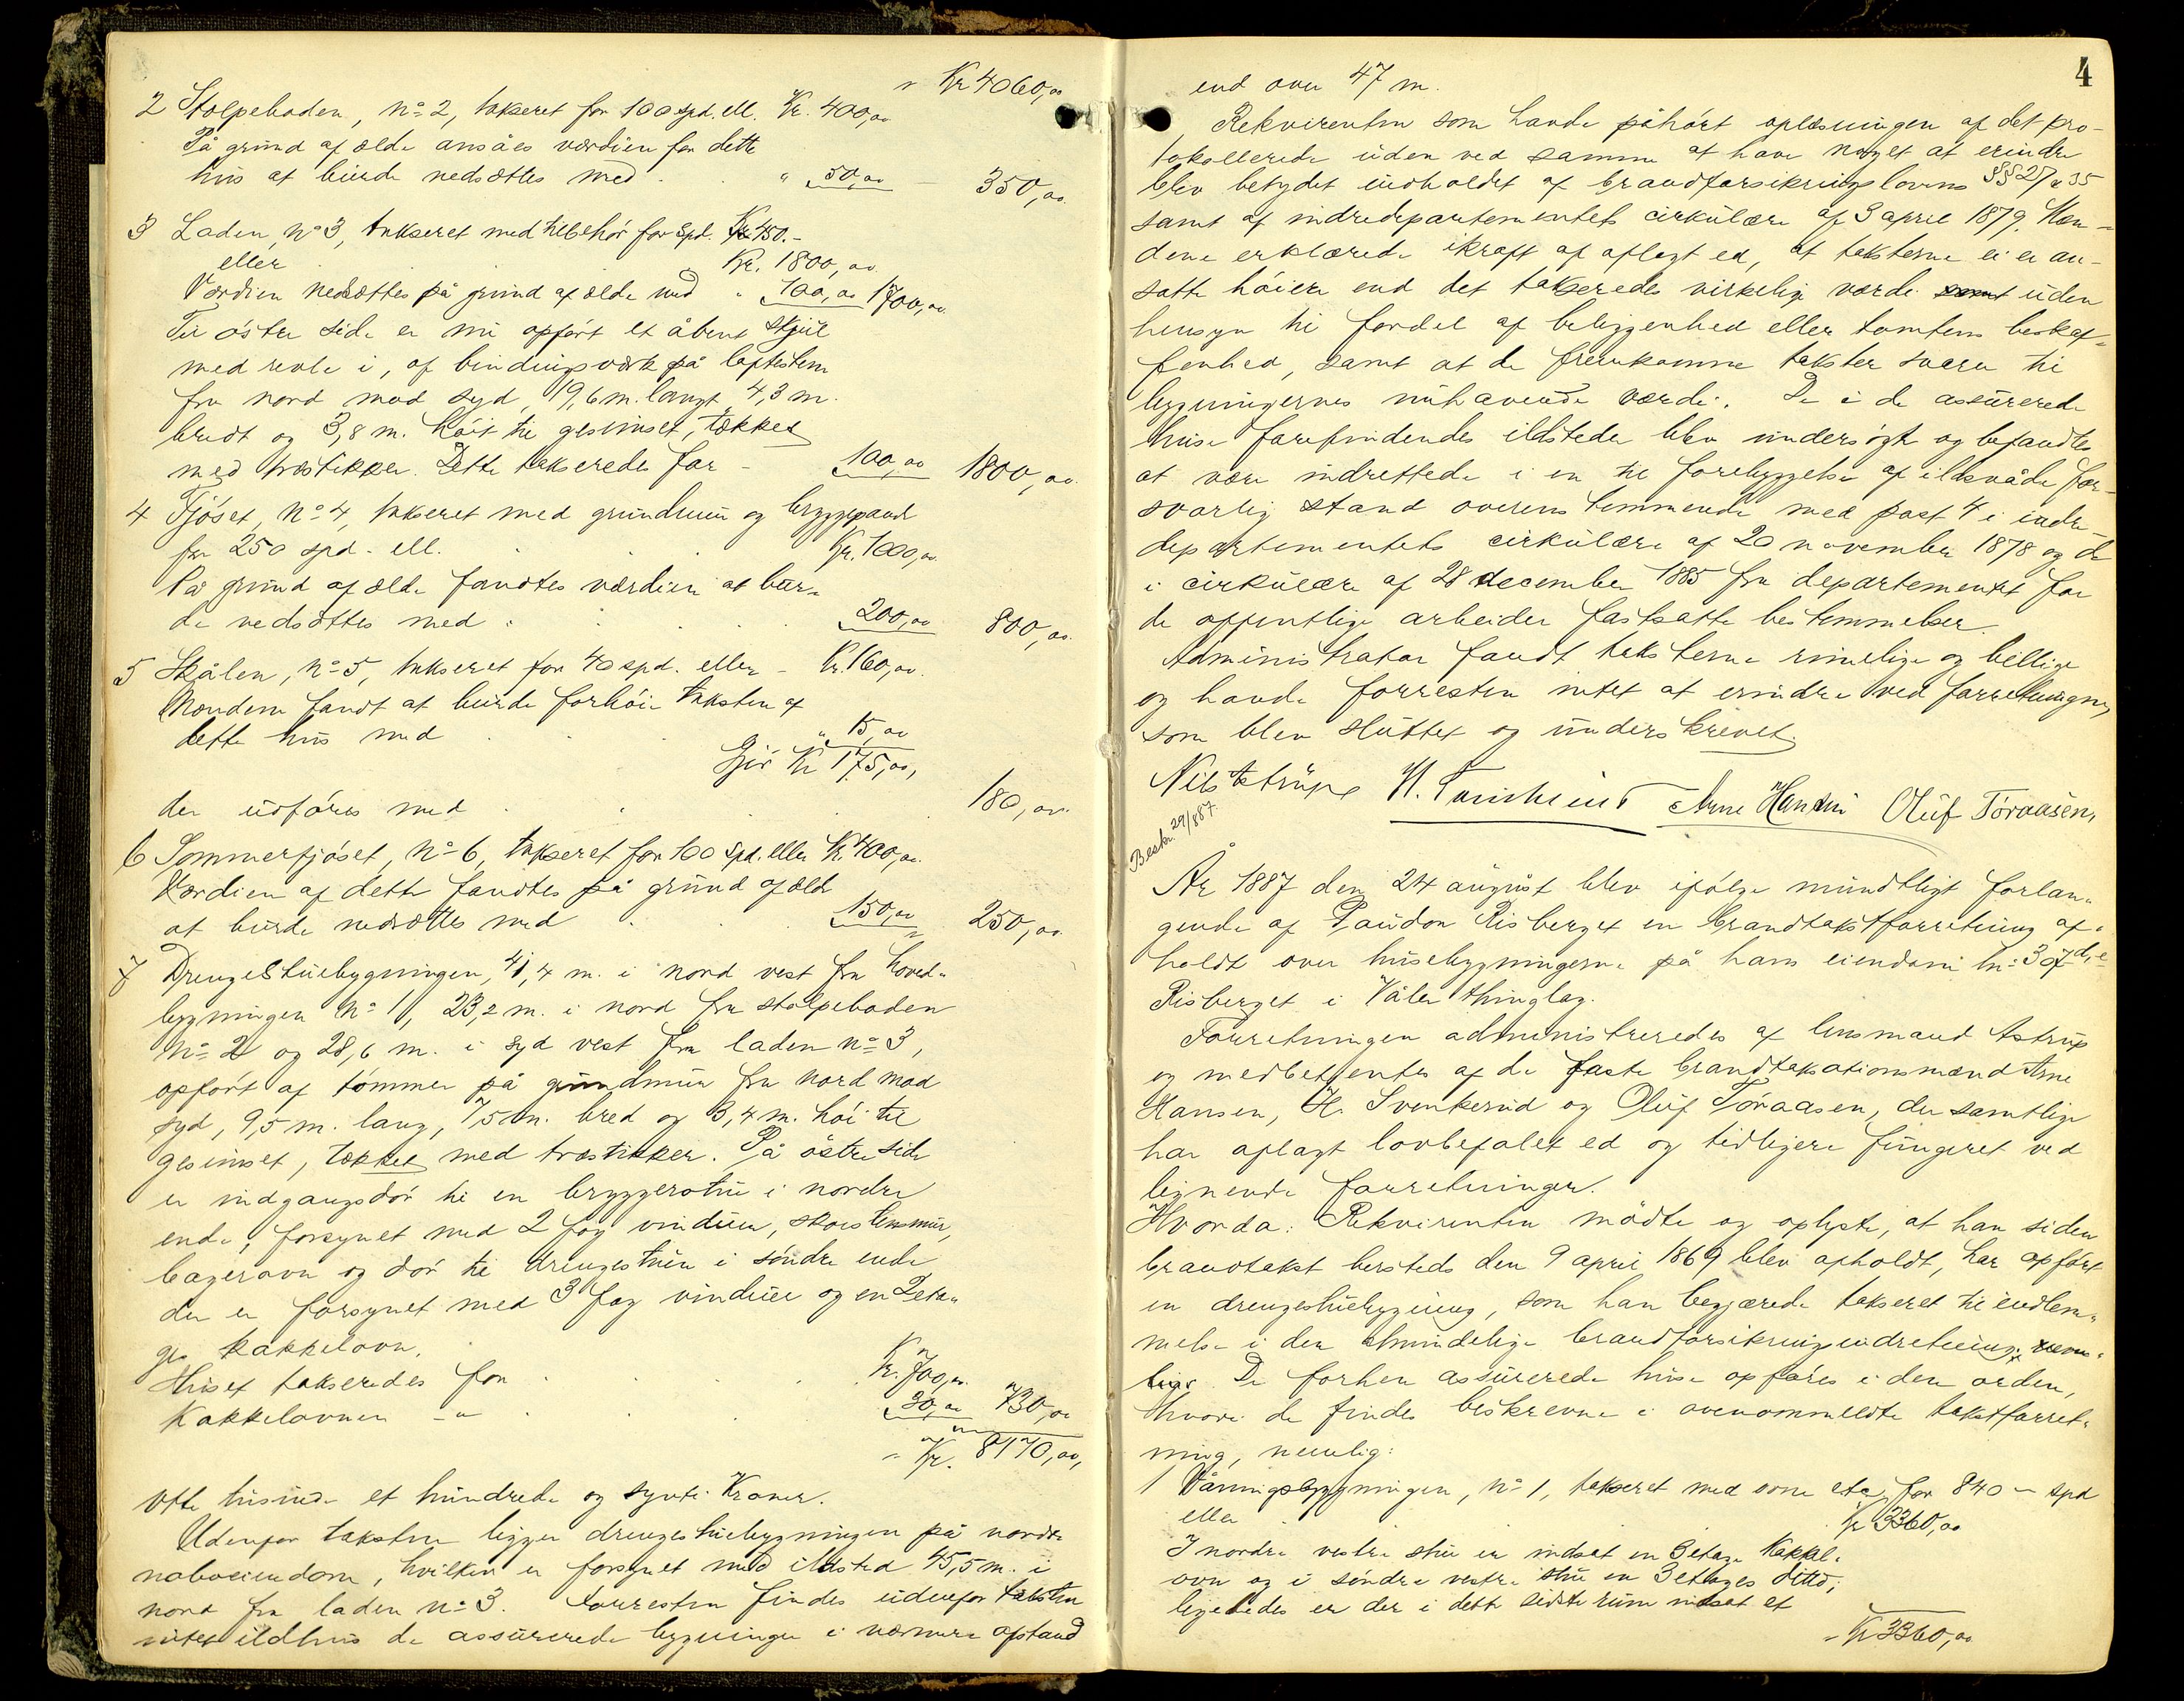 " Kr 4060,00
2 Stolpeboden, No 2, takseret for 100 spd. ell. Kr. 400,00
På grund af ælde ansåes værdien for dette
hus at burde nedsættes med . . " 50,00 350,00.
3 Laden, No 3, takseret med tilbehør for Spd. 450.-
eller . . . Kr. 1800,00
Værdien nedsættes på grund af ælde med " 100,00 1700,00.
Til østre side er nu opført et åbent skjul
med revle i, af bindingsværk på
fra nord mod syd, 19,6 m. langt, 4,3 m.
bredt og 3,8 m. høit til gesimset, tækket
med træstikker. Dette takseredes for - 100,00 1800,00.
4 Fjøset, No 4, takseret med grundmur og bryggepande
for 250 spd. ell. . . Kr. 1000,00
På grund af ælde fandtes værdien at bur-
de nedsættes med . . . . 200,00 800,00.
5 Skjålen, No 5, takseret for 40 spd. eller - Kr. 160,00.
Mændene fandt at burde forhøie taksten af
dette hus med . . . " 15,00
Gjør Kr 175,00,
der udføres med . . . . 180,00.
6 Sommerfjøset, No 6, takseret for 100 Spd. eller Kr 400,00.
Værdien af dette fandtes på grund af ælde
at burde nedsættes med . . . 150,00 250,00.
7 Drengestuebygningen, 41,4 m. i nord vest fra hoved-
bygningen No 1, 23,2 m. i nord fra stolpeboden
No 2 og 28,6 m. i syd vest fra laden No 3,
opført af tømmer på grundmur fra nord mod
syd, 9,5 m. lang, 7,5 m. bred og 3,4 m. høi til
gesimset, tækket med træstikker. På østre side
er indgangsdør til en bryggerstue i nordre
ende, forsynet med 2 fag vinduer, skorstensmur,
bagerovn og dør til drengestuen i søndre ende
der er forsynet med 3 fag vinduer og en 2 eta-
ges kakkelovn.
Huset takseredes for . . . Kr. 700,00.
Kakkelovnen - " . . . 30,00 730,00
" Kr. 8170,00,
Otte tusinde et hundrede og sytti Kroner.
Udenfor taksten ligger drengestuebygningen på nordre
naboeiendom, hvilken er forsynet med ildsted 45,5 m. i
nord fra laden No 3. Forresten findes udenfor taksten
intet ildhus de assurerede bygninger i nærmere afstand
4
end over 47 m.
Rekvirenten som havde påhørt oplæsningen af det pro-
tokollerede uden ved samme at have noget at erindre
blev betydet indholdet af brandforsikringslovens §§ 27 & 35
samt af indredepartementets cirkulære af 3 april 1879. Mæn-
dene erklærede ikraft af aflagt ed, at taksterne ei er an-
satte høiere end det takseredes virkelige værdi uden
hensyn til fordel af beliggenhed eller tomtens beskaf-
fenhed, samt at de fremkomne takster svarer til
bygningernes nuhavende værdi. De i de assurerede
huse forefindendes ildsteder blev undersøgte og befandtes
at være indrettede i en til forebyggelse af ildsvåde for-
svarlig stand overensstemmende med post 4 i indre-
departementets cirkulære af 20 november 1878 og de
i cirkulære af 28 december 1885 fra departementet for
de offentlige arbeider fastsatte bestemmelser.
Administrator fandt taksterne rimelige og billige
og havde forresten intet at erindre ved forretningen,
som blev sluttet og underskrevet.
Nils Astrup H. Svenkerud Arne Hansen Oluf Tøraasen,
Beskr. 29/8 87.
År 1887 den 24 august blev ifølge mundtligt forlan-
gende af Paudon Risberget en brandtakstforretning af-
holdt over husebygningerne på hans eiendom M: No 307
Risberget i Våler thinglag.
Forretningen administreredes af lensmand Astrup
og medbetjentes af de faste brandtaksationsmænd Arne
Hansen, H. Svenkerud og Oluf Tøraasen, der samtlige
har aflagt lovbefalet ed og tidligere fungeret ved
lignende forretninger.
Hvorda: Rekvirenten mødte og oplyste, at han siden
brandtakst hersteds den 9 april 1869 blev afholdt, har opført
en drengestuebygning, som han begjærede takseret til indlem-
melse i den almindelige brandforsikringsindretning.
De forhen assurerede huse opføres i den orden,
hvori de findes beskrevne i ovenommeldte takstforret-
ning, nemlig:
1 Våningsbygningen, No 1, takseret med ovne etc. for 840 - spd
eller . . . Kr 3360,00
I nordre vestre stue er indsat en 3 etage kakkel-
ovn og i søndre vestre stue en 3 etages ditto;
ligeledes er der i dette sidste rum indsat et
" Kr 3360,00